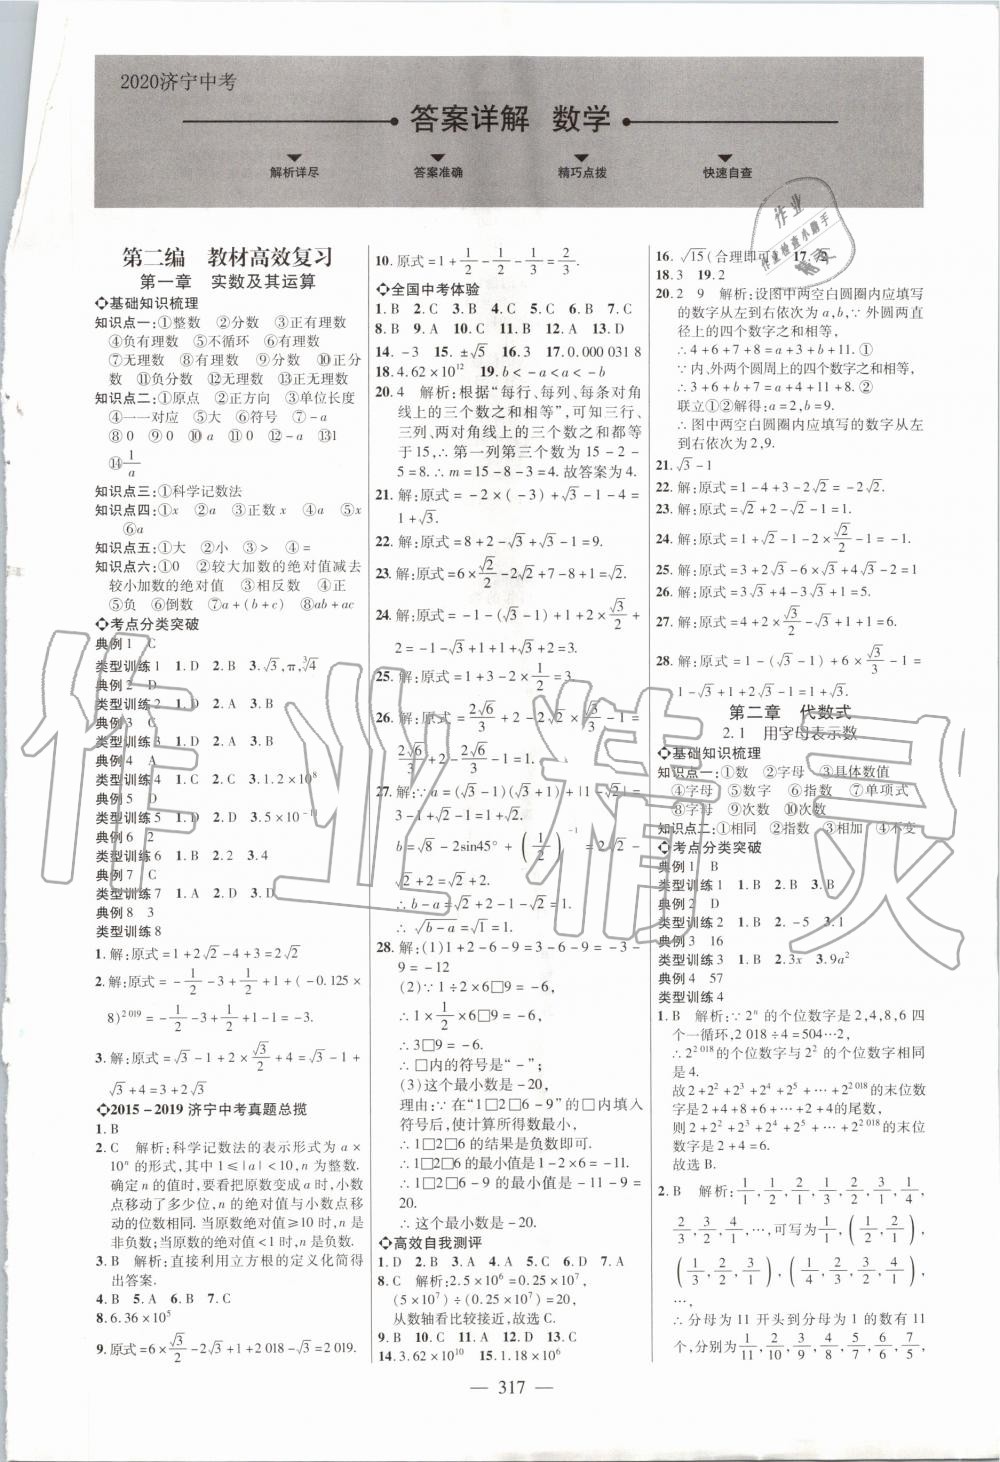 2020济宁中考
答案详解 数学
解析详尽 答案准确 精巧点拨 快速自查
第二编 教材高效复习
第一章 实数及其运算
基础知识梳理
知识点一:①整数 ②分数 ③正有理数
④负有理数 ⑤不循环 ⑥有理数
⑦无理数 ⑧有理数 ⑨分数 ⑩正分
数 ⑪负分数 ⑫无理数 ⑬正无理数
知识点二:①原点 ②正方向 ③单位长度
④一一对应 ⑤大 ⑥符号 ⑦-a
⑧0 ⑨0 ⑩a ⑪0 ⑫-a ⑬1
⑭1/a
知识点三:①科学记数法
知识点四:①x ②a ③正数x ④a ⑤x
⑥a
知识点五:①大 ②小 ③> ④=
知识点六:①0 ②较大加数的绝对值减去
较小加数的绝对值 ③相反数 ④正
⑤负 ⑥倒数 ⑦a+(b+c) ⑧ab+ac
考点分类突破
典例1 C
类型训练1 1.D 2.B 3.√3,π,∛4
典例2 D
类型训练2 1.D 2.A 3.B
典例3 C
类型训练3 1.D 2.B
典例4 A
类型训练4 1.B 2.C 3.1.2×10⁸
典例5 D
类型训练5 1.D 2.D 3.5×10⁻¹¹
典例6 2
类型训练6 1.B 2.2 3.4
典例7 C
类型训练7 1.A 2.A 3.D
典例8 3
类型训练8
1.解:原式=1+2√2-4+3=2√2
2.解:原式=-1/2-3+1/2+1+(-0.125×
8)²⁰¹⁹=-1/2-3+1/2+1-1=-3.
3.解:原式=√3-1+2×√3/2+4=√3-1+
√3+4=3+2√3
2015-2019济宁中考真题总揽
1.B
2.C 解析:科学记数法的表示形式为a×
10ⁿ的形式,其中1≤|a|<10,n为整数.
确定n的值时,要看把原数变成a时,小数
点移动了多少位,n的绝对值与小数点移
动的位数相同.当原数绝对值≥10时,n是
非负数;当原数的绝对值<1时,n是负数.
3.B 解析:直接利用立方根的定义化简得
出答案.
4.B 5.A 6.B 7.C
8.6.36×10⁵
9.原式=6×√3/2-2√3+1+2018-√3=2019.
10.原式=1+1/2-1/2-1/3=2/3.
全国中考体验
1.B 2.C 3.B 4.C 5.B 6.C 7.C
8.B 9.A 10.C 11.B 12.A 13.D
14.-3 15.±√5 16.3 17.0.0000318
18.4.62×10¹² 19.b<-a<a<-b
20.4 解析:根据“每行、每列、每条对角
线上的三个数之和相等”,可知三行、
三列、两对角线上的三个数之和都等
于15,∴第一列第三个数为15-2-
5=8.∴m=15-8-3=4.故答案为4.
21.解:原式=-2×(-3)+√3-1-4=
1+√3.
22.解:原式=8+2-√3+√3-1=9.
23.解:原式=6×√2/2-2√2+7-8+1=√2.
24.解:原式=-1-(√3-1)+1+2×√3/2+
2=-1-√3+1+1+√3+2=3.
25.解:原式=√3+1-√3+2×1/2+1=3.
26.解:原式=2√6/3+2-2√2×√3/3-1=
2√6/3+2-2√6/3-1=1.
27.解:∵a=(√3-1)(√3+1)+|1-√2|=
3-1+√2-1=1+√2.
b=√8-2sin45°+(1/2)⁻¹=2√2-
√2+2=√2+2.
∴b-a=√2+2-1-√2=1.
∴√(b-a)=√1=1.
28.解:(1)1+2-6-9=3-6-9=-3-
9=-12.
(2)∵1÷2×6□9=-6,
∴1×1/2×6□9=-6,
∴3□9=-6.
∴□内的符号是“-”;
(3)这个最小数是-20,
理由:∵在“1□2□6-9”的□内填入
符号后,使计算所得数最小,
∴1□2□6的结果是负数即可.
∴1□2□6的最小值是1-2×6=-11,
∴1□2□6-9的最小值是-11-9=-
20.
∴这个最小数是-20.
高效自我测评
1.D 2.B 3.A 4.A 5.C 6.D 7.A
8.C 解析:2.5×10⁶=0.25×10⁷,
(5×10⁷)÷(0.25×10⁷)=20,
从数轴看比较接近,故选C.
9.B 10.C 11.A 12.D 13.C
14.3.62×10¹⁰ 15.1.18×10⁶
16.√15(合理即可) 17.√2
18.3 19.2
20.2 9 解析:设图中两空白圆圈内应填写
的数字从左到右依次为a,b,∵外圆两直
径上的四个数字之和相等,
∴4+6+7+8=a+3+b+11.①
∵内、外两个圆周上的四个数字之和相
等,∴3+6+b+7=a+4+11+8.②
联立①②解得:a=2,b=9.
∴图中两空白圆圈内应填写的数字从左
到右依次为2,9.
21.√3-1
22.解:原式=1-4+3-2√2=-2√2.
23.解:原式=√2+2-√2-1=1.
24.解:原式=1+√2-1-2×√2/2-1=-1.
25.解:原式=3+2√3-6×√3/3+4√3-2=1
26.解:原式=1+3-√3+√3+1=5.
27.解:原式=4+2×√3/2-√3+1+1=6.
28.解:原式=1-(√3-1)+6×√3/3-1=
1-√3+1+2√3-1=1+√3
第二章 代数式
2.1 用字母表示数
基础知识梳理
知识点一:①数 ②字母 ③具体数值
④字母 ⑤数字 ⑥指数 ⑦单项式
⑧字母 ⑨次数 ⑩次数
知识点二:①相同 ②指数 ③相加 ④不变
考点分类突破
典例1 B
类型训练1 1.B 2.B 3.B
典例2 D
类型训练2 1.B 2.-5 3.1
典例3 16
类型训练3 1.B 2.3x 3.9a²
典例4 57
类型训练4
1.B 解析:∵2ⁿ的个位数字是2,4,8,6四
个一循环,2018÷4=504…2,
∴2²⁰¹⁸的个位数字与2²的个位数字相同
是4.
故2+2²+2³+2⁴+2⁵+…+2²⁰¹⁸的末位数
字是2+4+8+6+…+2+4的尾数,
则2+2²+2³+2⁴+2⁵+…+2²⁰¹⁸的末位
数字是2+4=6.
故选B.
2.B 解析:1/1,1/2,2/1,1/3,2/2,3/1,1/4,
2/3,3/2,4/1,…,可写为1/1,(1/2,2/1),
(1/3,2/2,3/1),(1/4,2/3,3/2,4/1),
…,
∴分母为11开头到分母为1的数有11
个,分别为1/11,2/10,3/9,4/8,5/7,6/6,7/5,
— 317 —